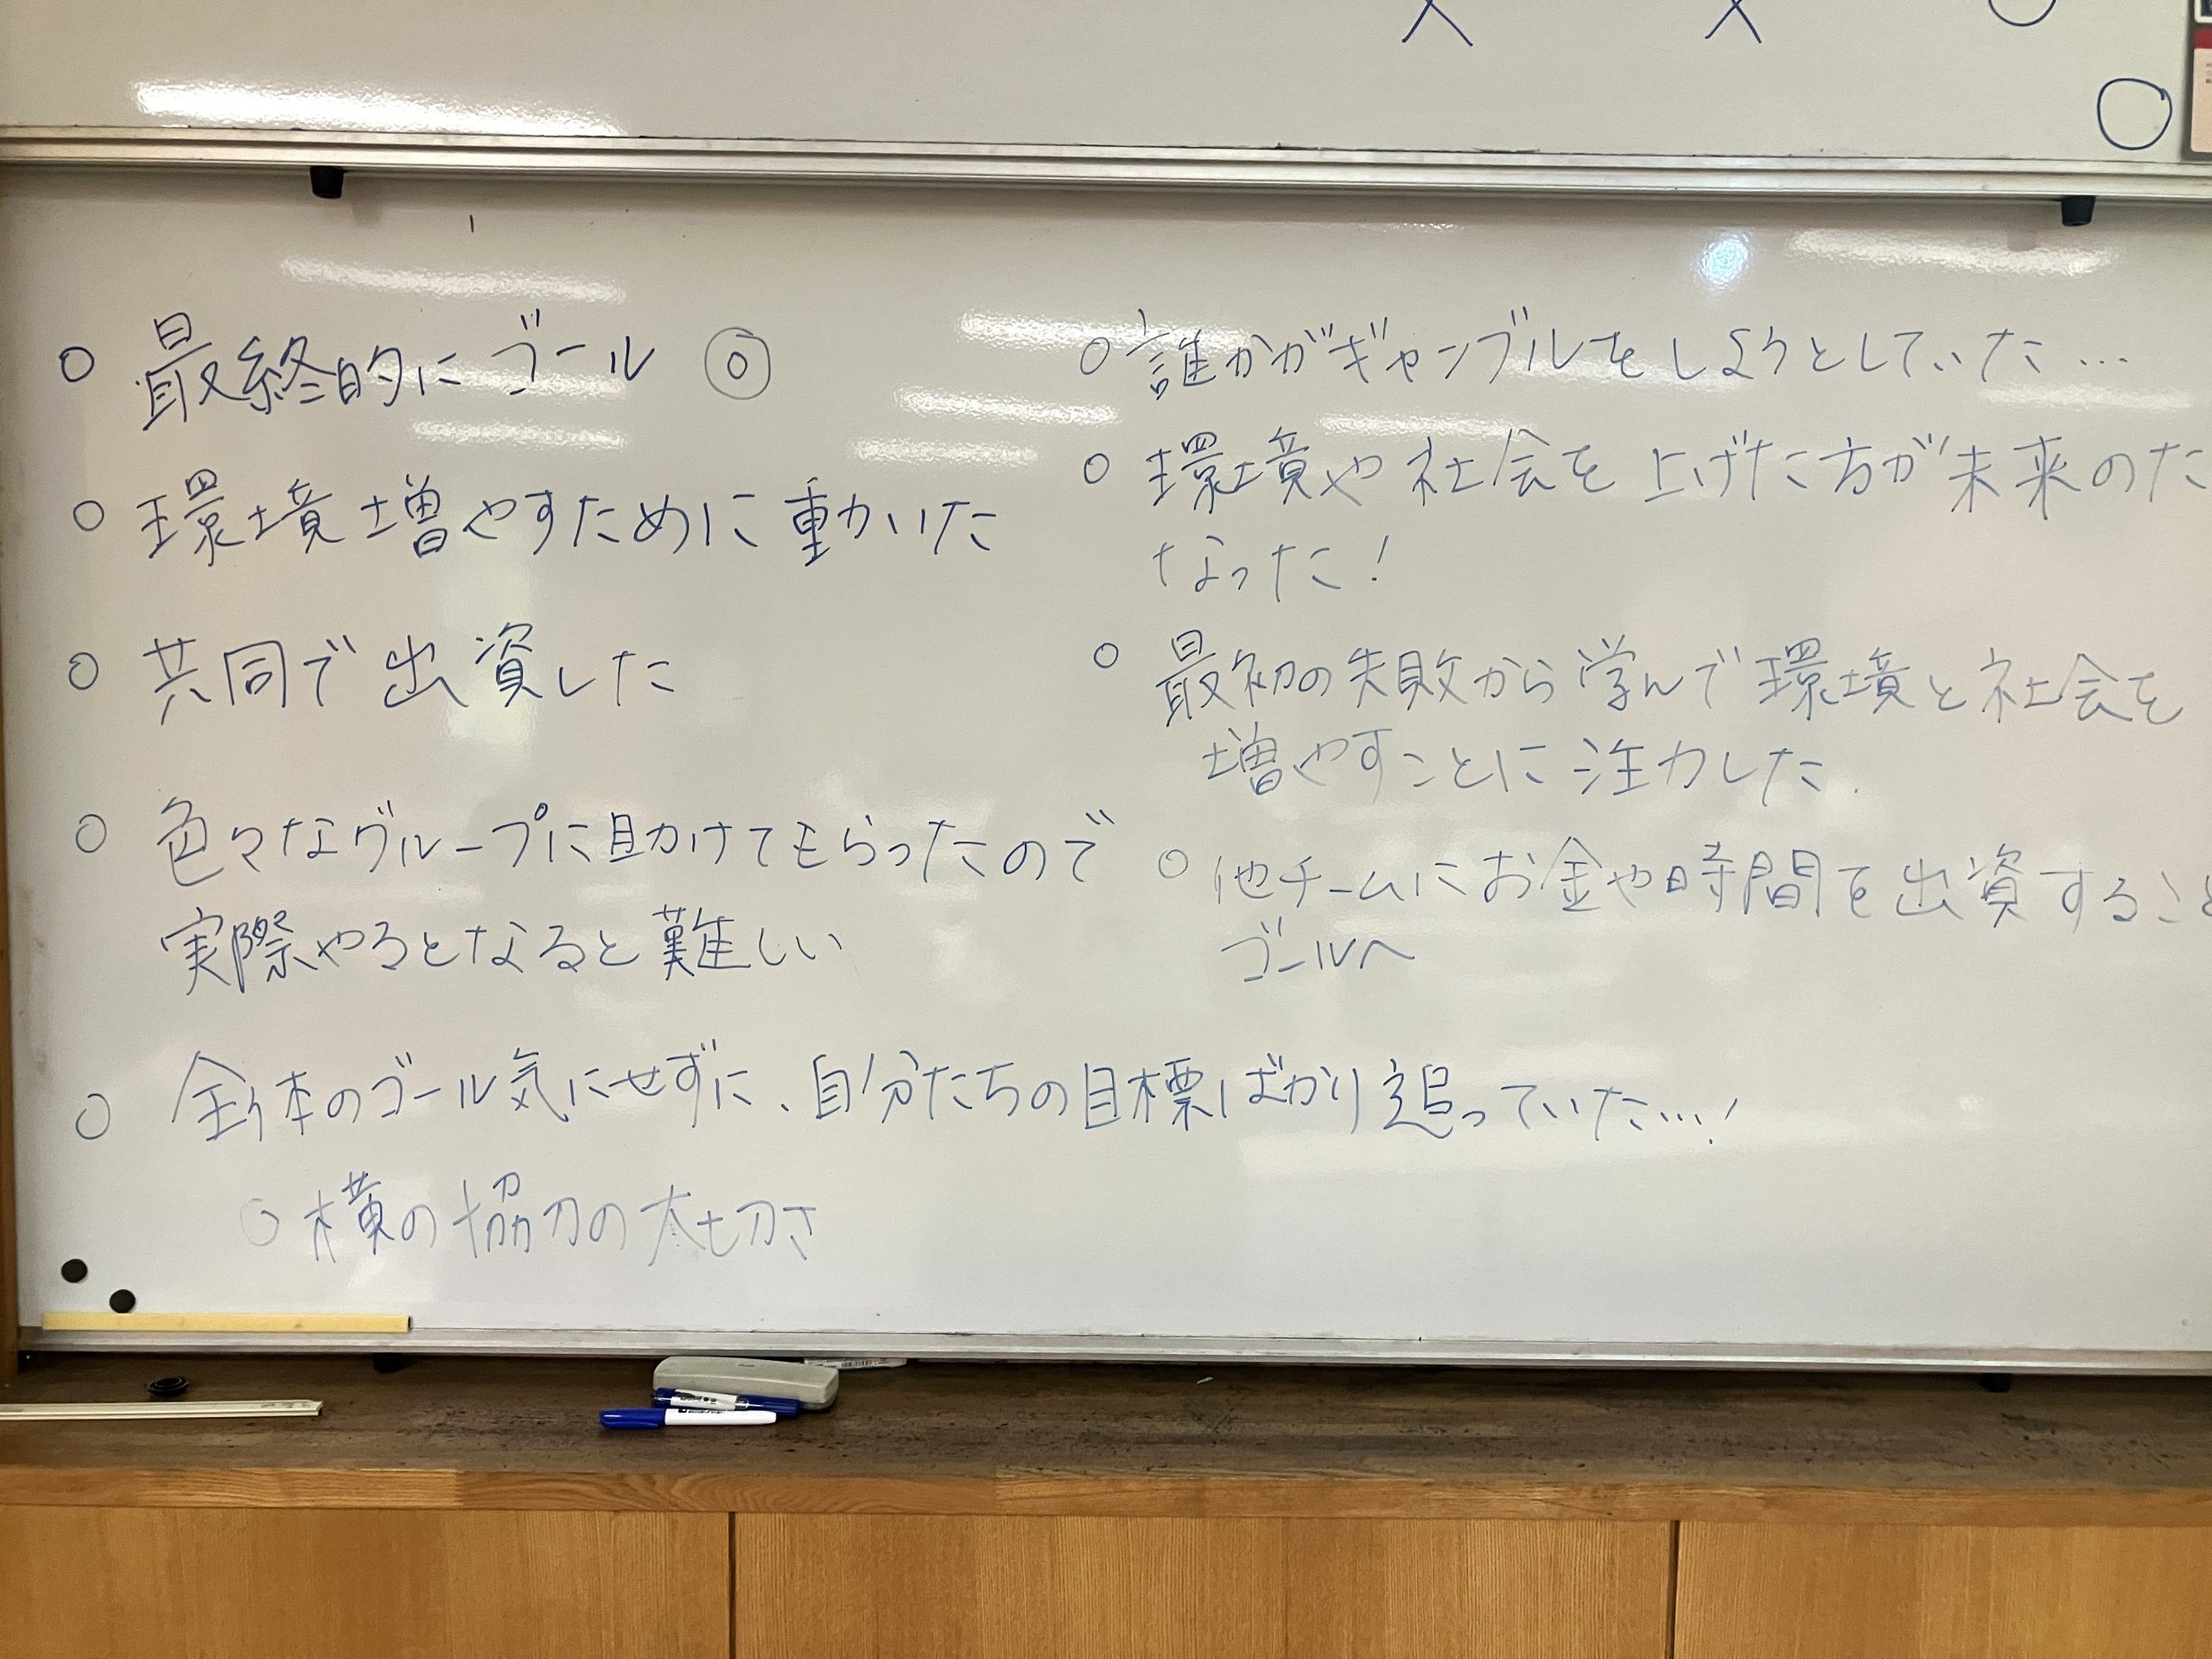 ○ 最終的にゴール ◎
○ 環境増やすために動かいた
○ 共同で出資した
○ 色々なグループに助けてもらったので
実際やるとなると難しい
○ 全体のゴール気にせずに、自分たちの目標ばかり追っていた…!
○ 横の協力の大切さ
○ 誰かがギャンブルをしようとしていた…
○ 環境や社会を上げた方が未来のた
なった!
○ 最初の失敗から学んで環境と社会を
増やすことに注力した.
○ 他チームにお金や時間を出資すること
ゴールへ